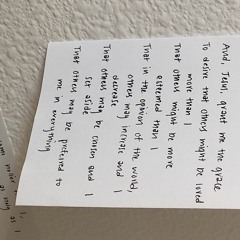 And, Jesus, grant me the grace
To desire that others might be loved
more than I
That others might be more
esteemed than I
That in the opinion of the world,
others may increase and I
decrease
That others may be chosen and I
set aside
That others may be preferred to
me in everything